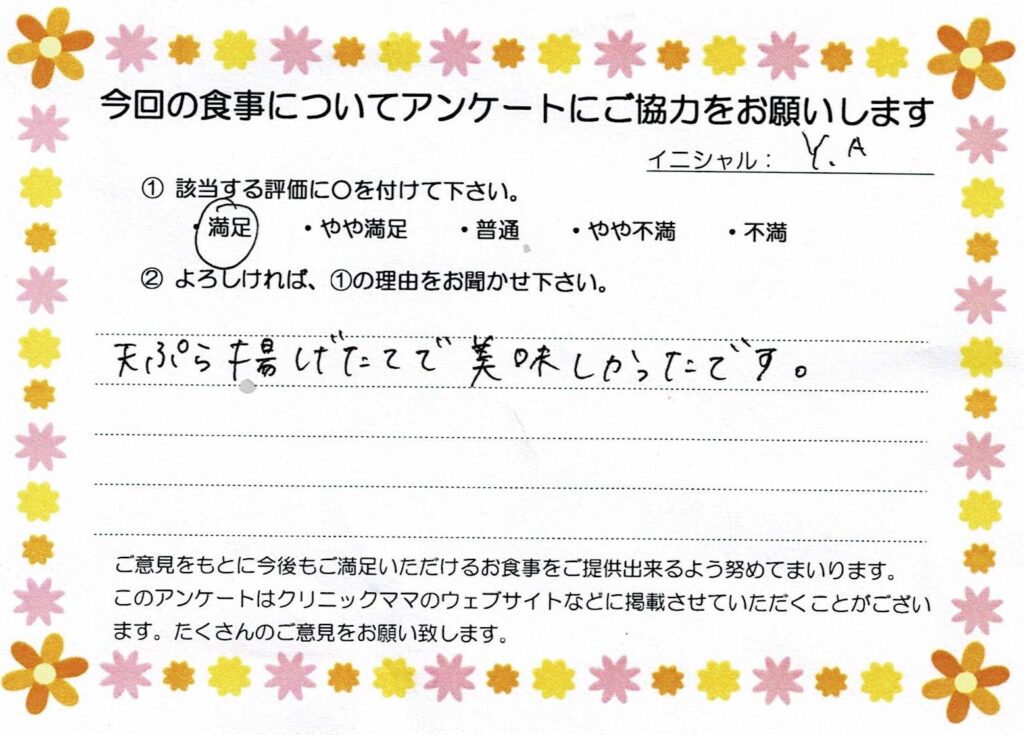 今回の食事についてアンケートにご協力をお願いします
イニシャル： Y.A
① 該当する評価に〇を付けて下さい。
・満足 ・やや満足 ・普通 ・やや不満 ・不満
② よろしければ、①の理由をお聞かせ下さい。
天ぷら揚げたてで美味しかったです。
ご意見をもとに今後もご満足いただけるお食事をご提供出来るよう努めてまいります。
このアンケートはクリニックママのウェブサイトなどに掲載させていただくことがござい
ます。たくさんのご意見をお願い致します。